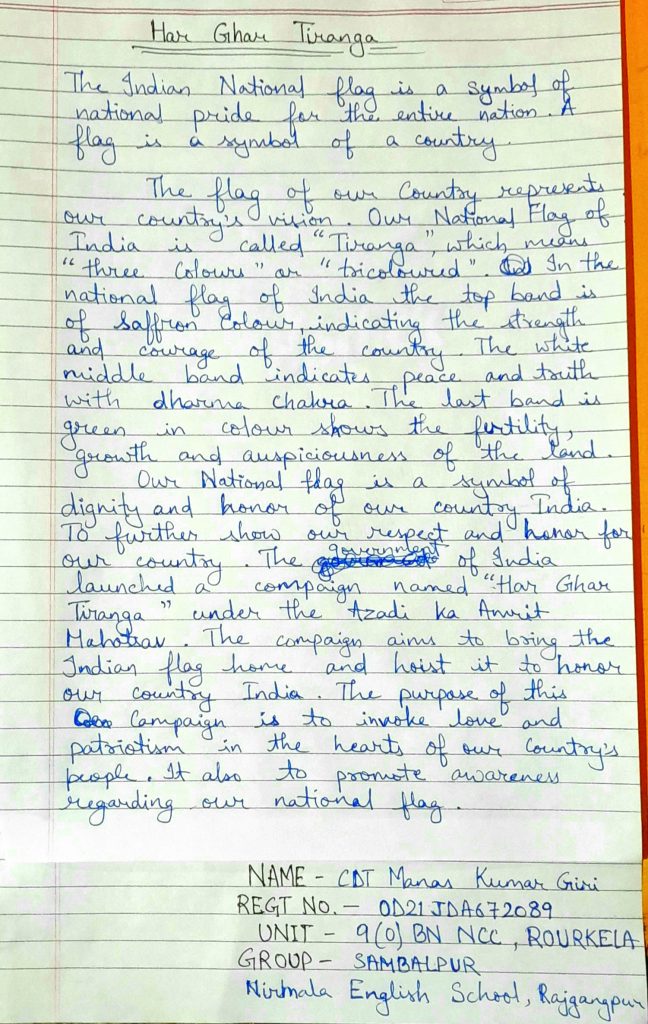 Har Ghar Tiranga
The Indian National flag is a symbol of
national pride for the entire nation. A
flag is a symbol of a country.
The flag of our Country represents
our country's vision. Our National Flag of
India is called "Tiranga", which means
"three Colours" or "tricoloured". In the
national flag of India the top band is
of Saffron Colour, indicating the strength
and courage of the country. The white
middle band indicates peace and truth
with dharma Chakra. The last band is
green in colour shows the fertility,
growth and auspiciousness of the land.
Our National flag is a symbol of
dignity and honor of our country India.
To further show our respect and honor for
our country. The government of India
launched a compaign named "Har Ghar
Tiranga" under the Azadi ka Amrit
Mahotsav. The compaign aims to bring the
Indian flag home and hoist it to honor
our country India. The purpose of this
Campaign is to invoke love and
patriotism in the hearts of our Country's
people. It also to promote awareness
regarding our national flag.
NAME - CDT Manas Kumar Giri
REGT NO. - OD21JDA672089
UNIT - 9(O) BN NCC, ROURKELA
GROUP - SAMBALPUR
Nirmala English School, Rajgangpur